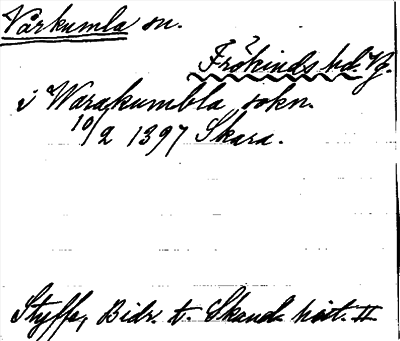 Vårkumla sn.
Frökinds hd. Vg.
i Warakumbla sokn.
10/2 1397 Skara.
Styffe, Bidr. t. Skand. hist. II